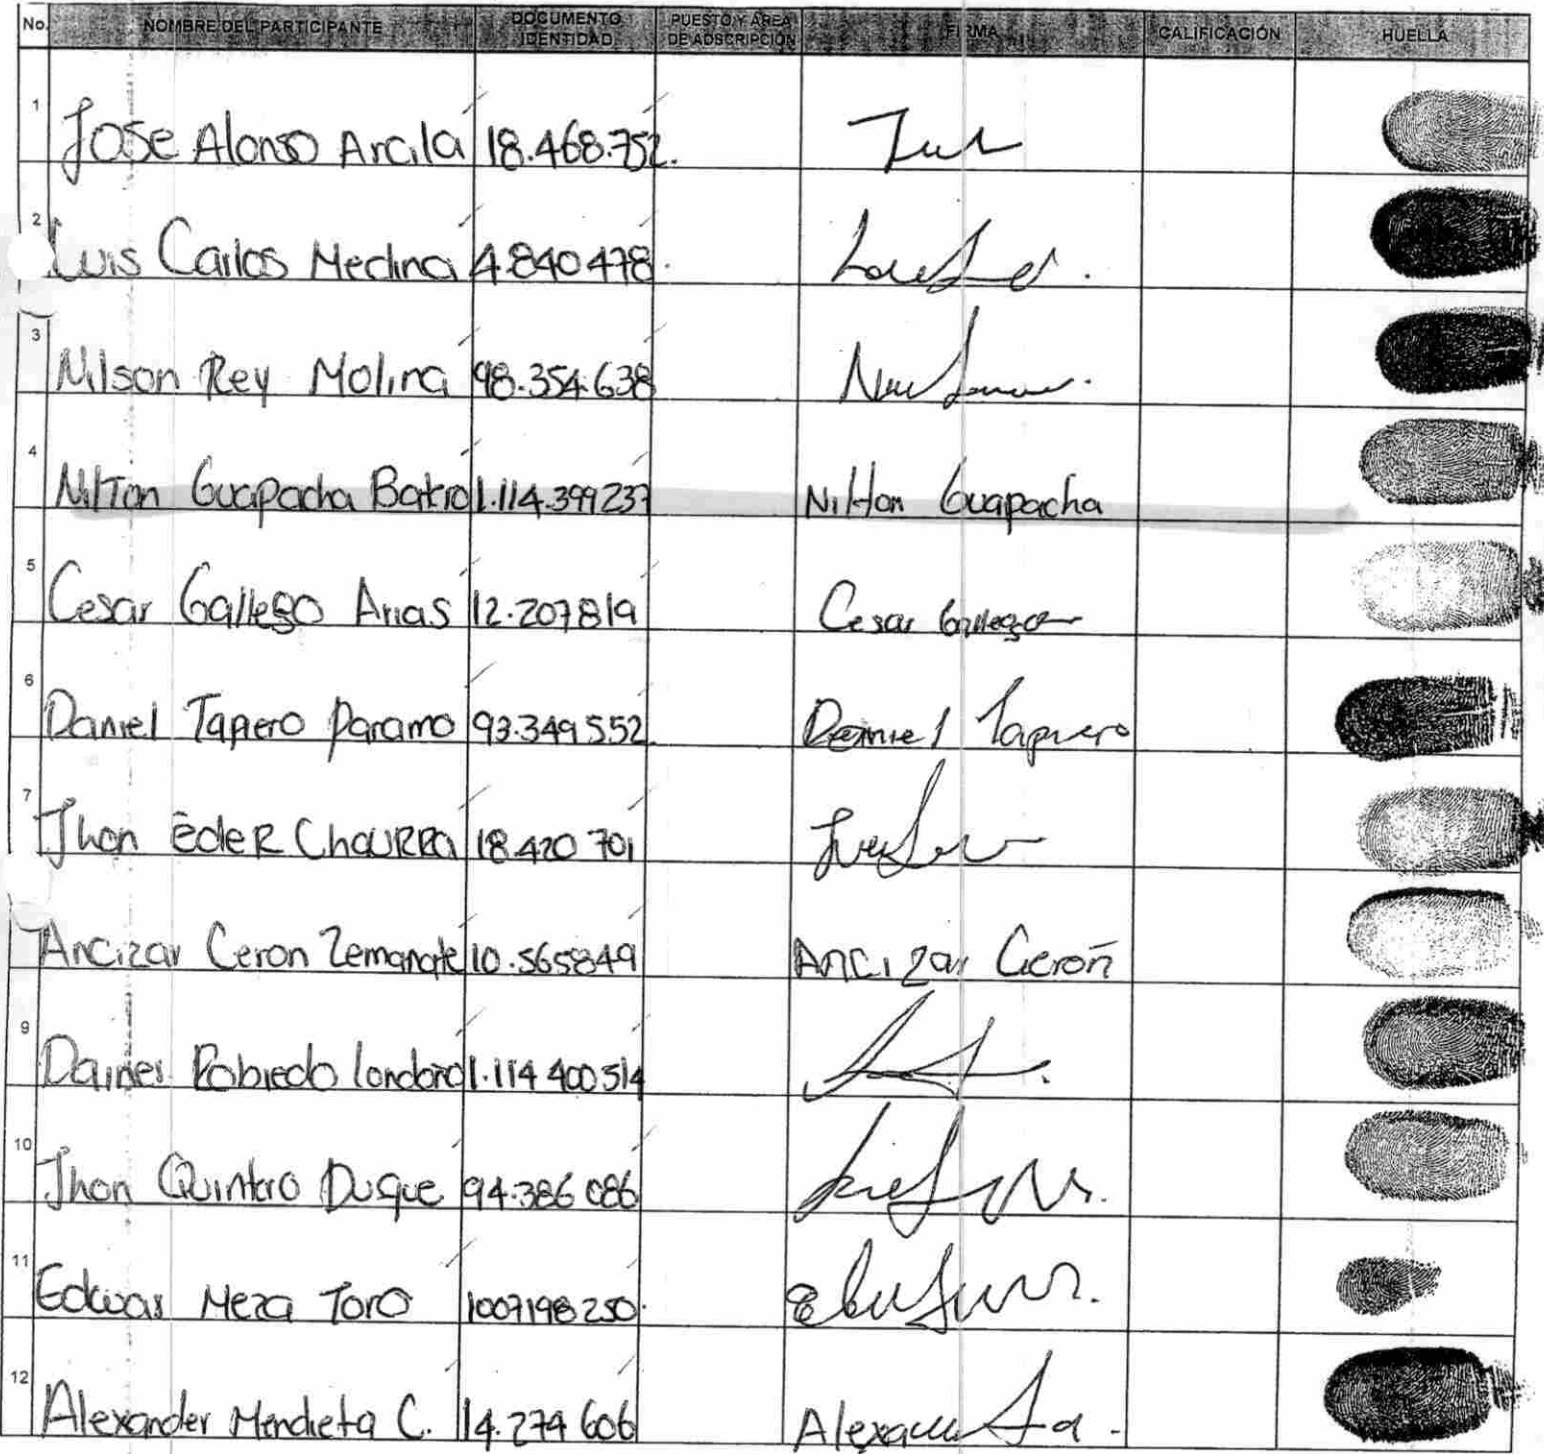 No. NOMBRE DEL PARTICIPANTE DOCUMENTO IDENTIDAD PUESTO Y AREA DE ADSCRIPCIÓN FIRMA CALIFICACIÓN HUELLA
1 Jose Alonso Arcila 18.468.752.
2 Luis Carlos Medina 4.840478.
3 Nilson Rey Molina 98.354.638
4 Nilton Guapacha Batro 1.114.399237 Nilton Guapacha
5 Cesar Gallego Arias 12.207819 Cesar Gallego
6 Daniel Tapiero Paramo 93.349552 Daniel Tapiero
7 Jhon EdeR ChauRRa 18.420 701
Ancizar Ceron Zemanate 10.565849 Ancizar Ceron
9 Dainer Robledo londono 1.114 400514
10 Jhon Quintero Duque 94.386 086
11 Edwar Meza Toro 1007198250.
12 Alexander Mendieta C. 14.274 606